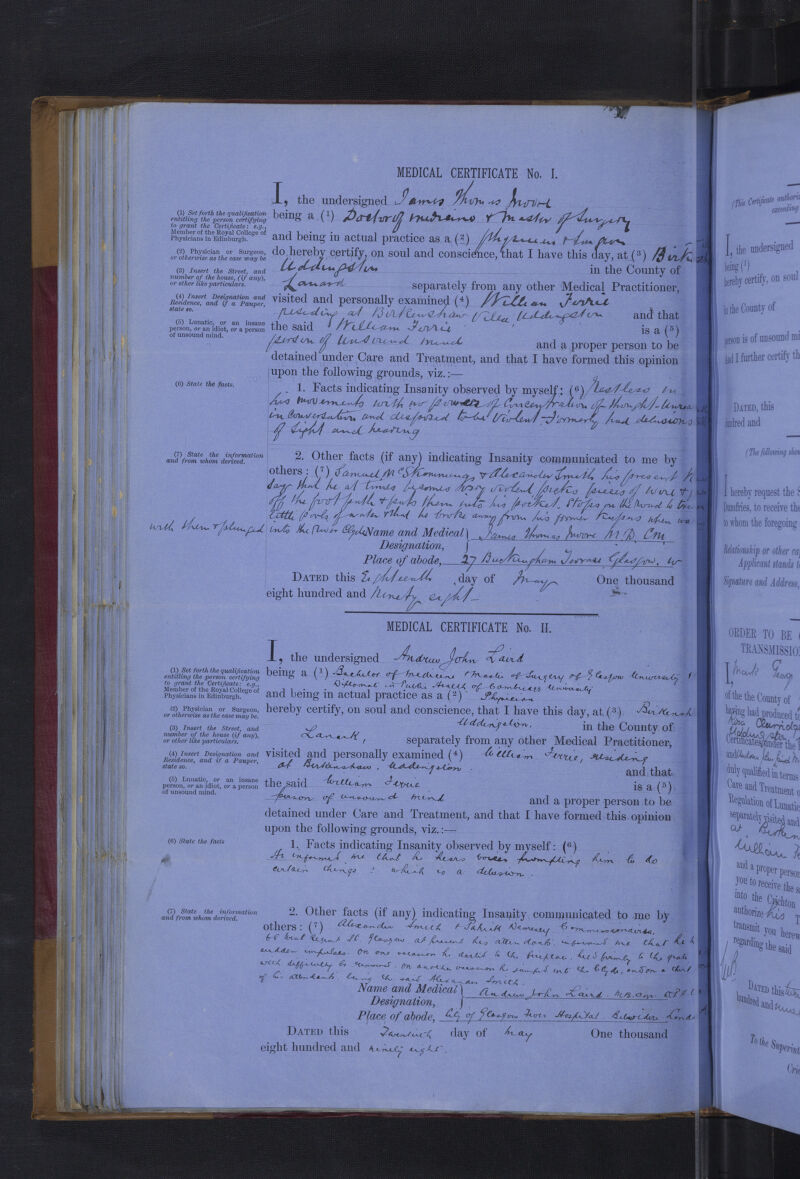 MEDICAL CERTIFICATE No. I.
I, the undersigned James Thomas Moore
(1) Set forth the qualification
entitling the person certifying
to grant the Certificate: e.g.,
Member of the Royal College of
Physicians in Edinburgh.
being a (1) Doctor of Medicine & Master of Surgery
and being in actual practice as a (2) Physician & Surgeon
(2) Physician or Surgeon,
or otherwise as the case may be
do hereby certify, on soul and conscience, that I have this day, at (3)
Uddingston in the County of
(3) Insert the Street, and
number of the house, (if any),
or other like particulars.
Lanark separately from any other Medical Practitioner,
(4) Insert Designation and
Residence, and if a Pauper,
state so.
visited and personally examined (4) William Ferrie
residing at Birkenshaw Villa Uddingston and that
(5) Lunatic, or an insane
person, or an idiot, or a person
of unsound mind.
the said William Ferrie is a (5)
person of unsound mind and a proper person to be
detained under Care and Treatment, and that I have formed this opinion
upon the following grounds, viz.:—
(6) State the facts.
1. Facts indicating Insanity observed by myself: (6) Restless in
his movements with no power of Concentration of thought -
in conversation and disposed to be violent - Formerly had delusions
of sight and hearing
(7) State the information
and from whom derived.
2. Other facts (if any) indicating Insanity communicated to me by
others: (7) Samuel & Alexander Smith his present
say that he at times becomes very violent picks pieces of wire &
off the foot path & puts them into his pocket. Stops on the road to
little pools of water & that he broke away from his former keepers when
with them & plunged into the River Clyde
Name and Medical Designation, James Thomas Moore M.D. C.M.
Place of abode, 27 Buckingham Terrace Glasgow, W
DATED this Eighteenth day of May One thousand
eight hundred and Ninety eight -
MEDICAL CERTIFICATE No. II.
I, the undersigned Andrew John Laird
(1) Set forth the qualification
entitling the person certifying
to grant the Certificate: e.g.,
Member of the Royal College of
Physicians in Edinburgh.
being a (1) Bachelor of Medicine & Master of Surgery of Glasgow University &
Diploma in Public Health of Cambridge University
and being in actual practice as a (2) Physician
(2) Physician or Surgeon,
or otherwise as the case may be.
hereby certify, on soul and conscience, that I have this day, at (3)
Uddingston. in the County of
(3) Insert the Street, and
number of the house (if any),
or other like particulars.
Lanark, separately from any other Medical Practitioner,
(4) Insert Designation and
Residence, and if a Pauper,
state so.
visited and personally examined (4) William Ferrie, residing
at Birkenshaw, Uddingston and that
(5) Lunatic, or an insane
person, or an idiot, or a person
of unsound mind.
the said William Ferrie is a (5)
person of unsound mind and a proper person to be
detained under Care and Treatment, and that I have formed this opinion
upon the following grounds, viz.:—
(6) State the facts
1. Facts indicating Insanity observed by myself: (6)
He informed me that he hears voices prompting him to do
certain things : which is a delusion.
(7) State the information
and from whom derived.
2. Other facts (if any) indicating Insanity communicated to me by
others: (7) Alexander Smith & Patrick Commissionaires,
66 West Regent St. Glasgow at present his attendants. informed me that he
sudden impulses. On one occasion he darted to the fireplace. held firmly to the grate
with difficulty be removed. On another occasion he jumped into the Clyde, and on a third
of his attendants being the said Alexander Smith.
Name and Medical Designation, Andrew John Laird. M.B. C.M.
Place of abode, City of Glasgow Fever Hospital Belvidere
DATED this Twentieth day of May One thousand
eight hundred and ninety eight.
I, the undersigned
being (1)
hereby certify, on soul
in the County of
person is of unsound
And I further certify
DATED, this
I hereby request the
Dumfries, to receive
to whom the foregoing
Relationship or other
Applicant stands
Signature and Address,
ORDER TO BE
TRANSMISSION
of the the County of
having had produced
Certificates under the
duly qualified in terms
Care and Treatment
Regulation of
separately visited and
and a proper person
you to receive the
into the Crichton
authorize his
transmit you
regarding the said
DATED this
hundred and
To the